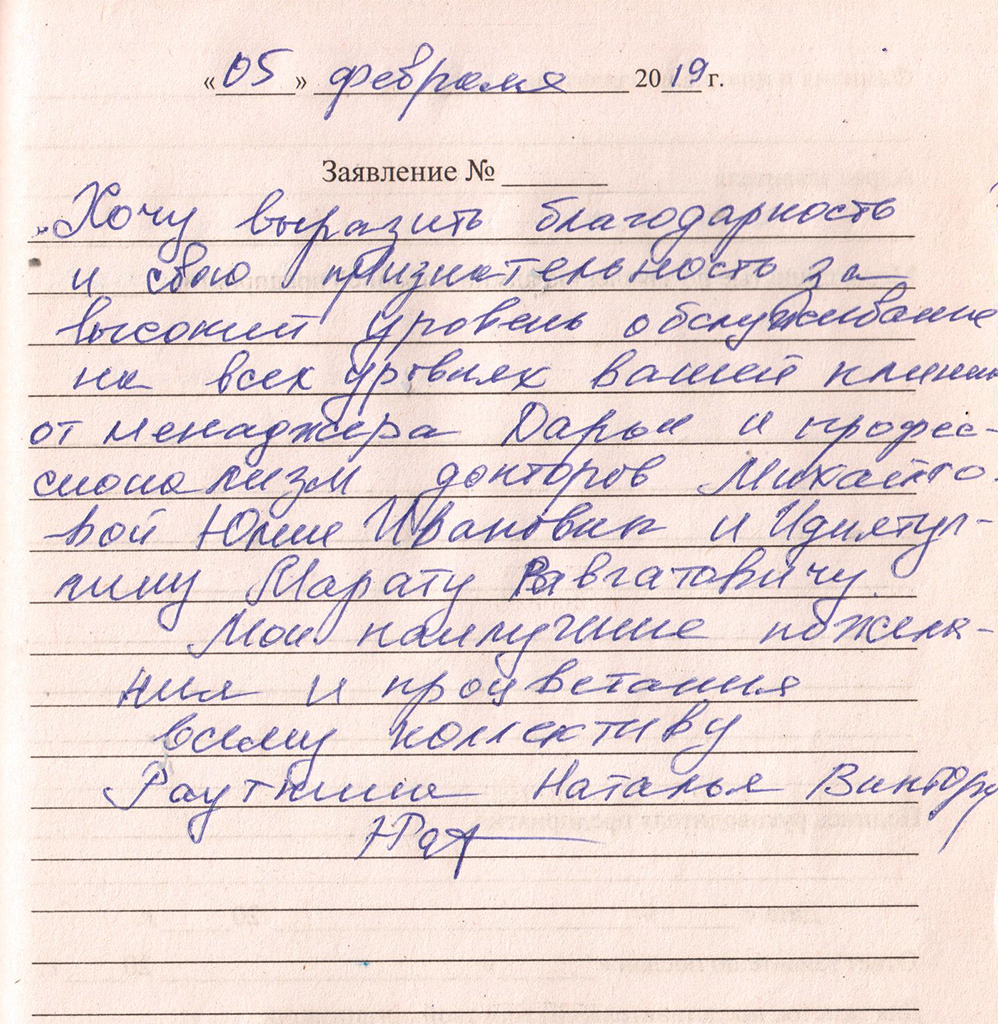 « 05 » февраля 2019 г.
Заявление № ______
Хочу выразить благодарность
и свою признательность за
высокий уровень обслуживание
на всех уровнях вашей клиник
от менаджера Дарьи и профес-
сионализм докторов Михайло-
вой Юлие Ивановне и Идиятул-
лину Марату Равгатовичу.
Мои наилучшие пожела-
ния и процветания
всему коллективу
Рауткина Наталья Виктор